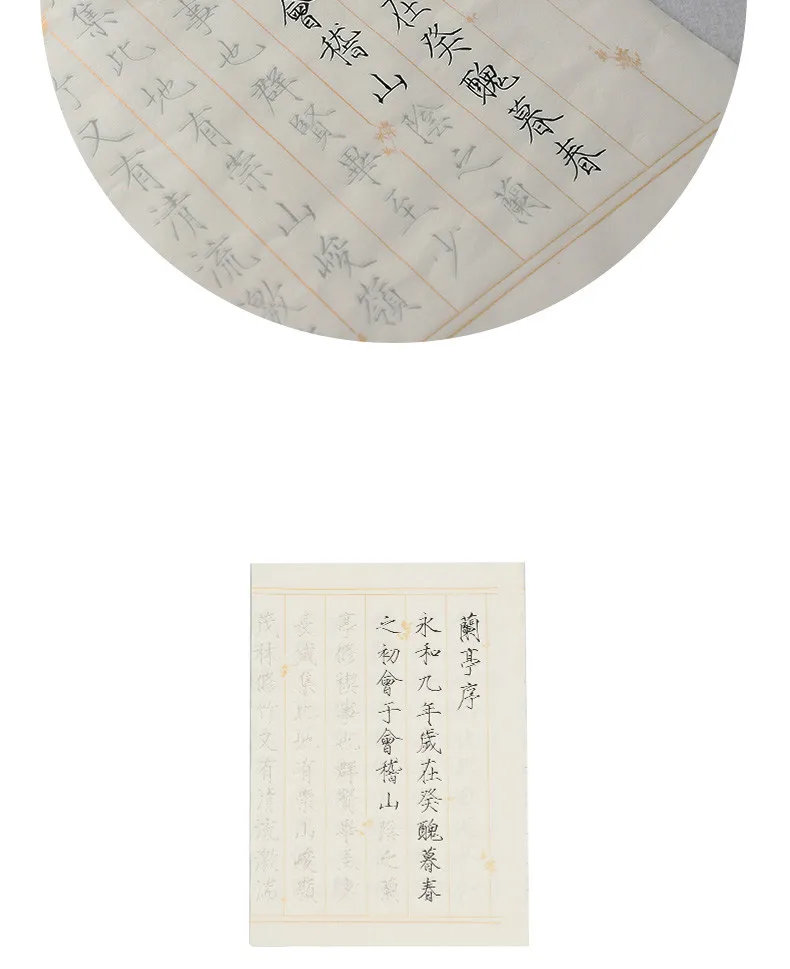 在癸醜暮春
會稽山陰之蘭
事也群賢畢至少
集此地有崇山峻嶺
竹又有清流激
蘭亭序
永和九年歲在癸醜暮春
之初會于會稽山陰之蘭
亭修禊事也群賢畢至少
長咸集此地有崇山峻嶺
茂林修竹又有清流激湍